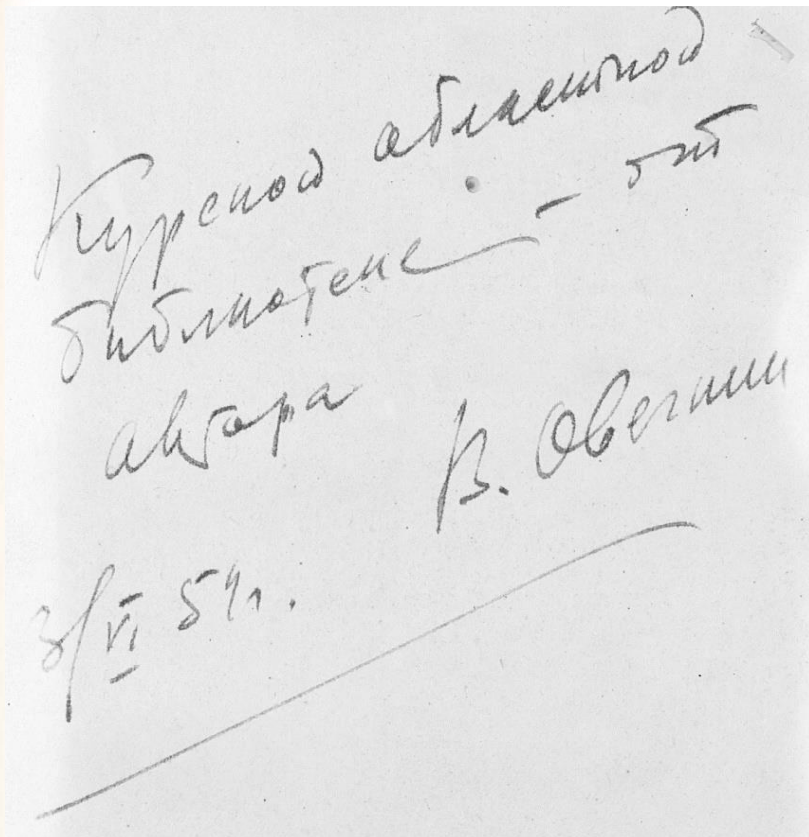 Курской областной
библиотеке – от
автора
В. Овечкин
3/VI 54 г.